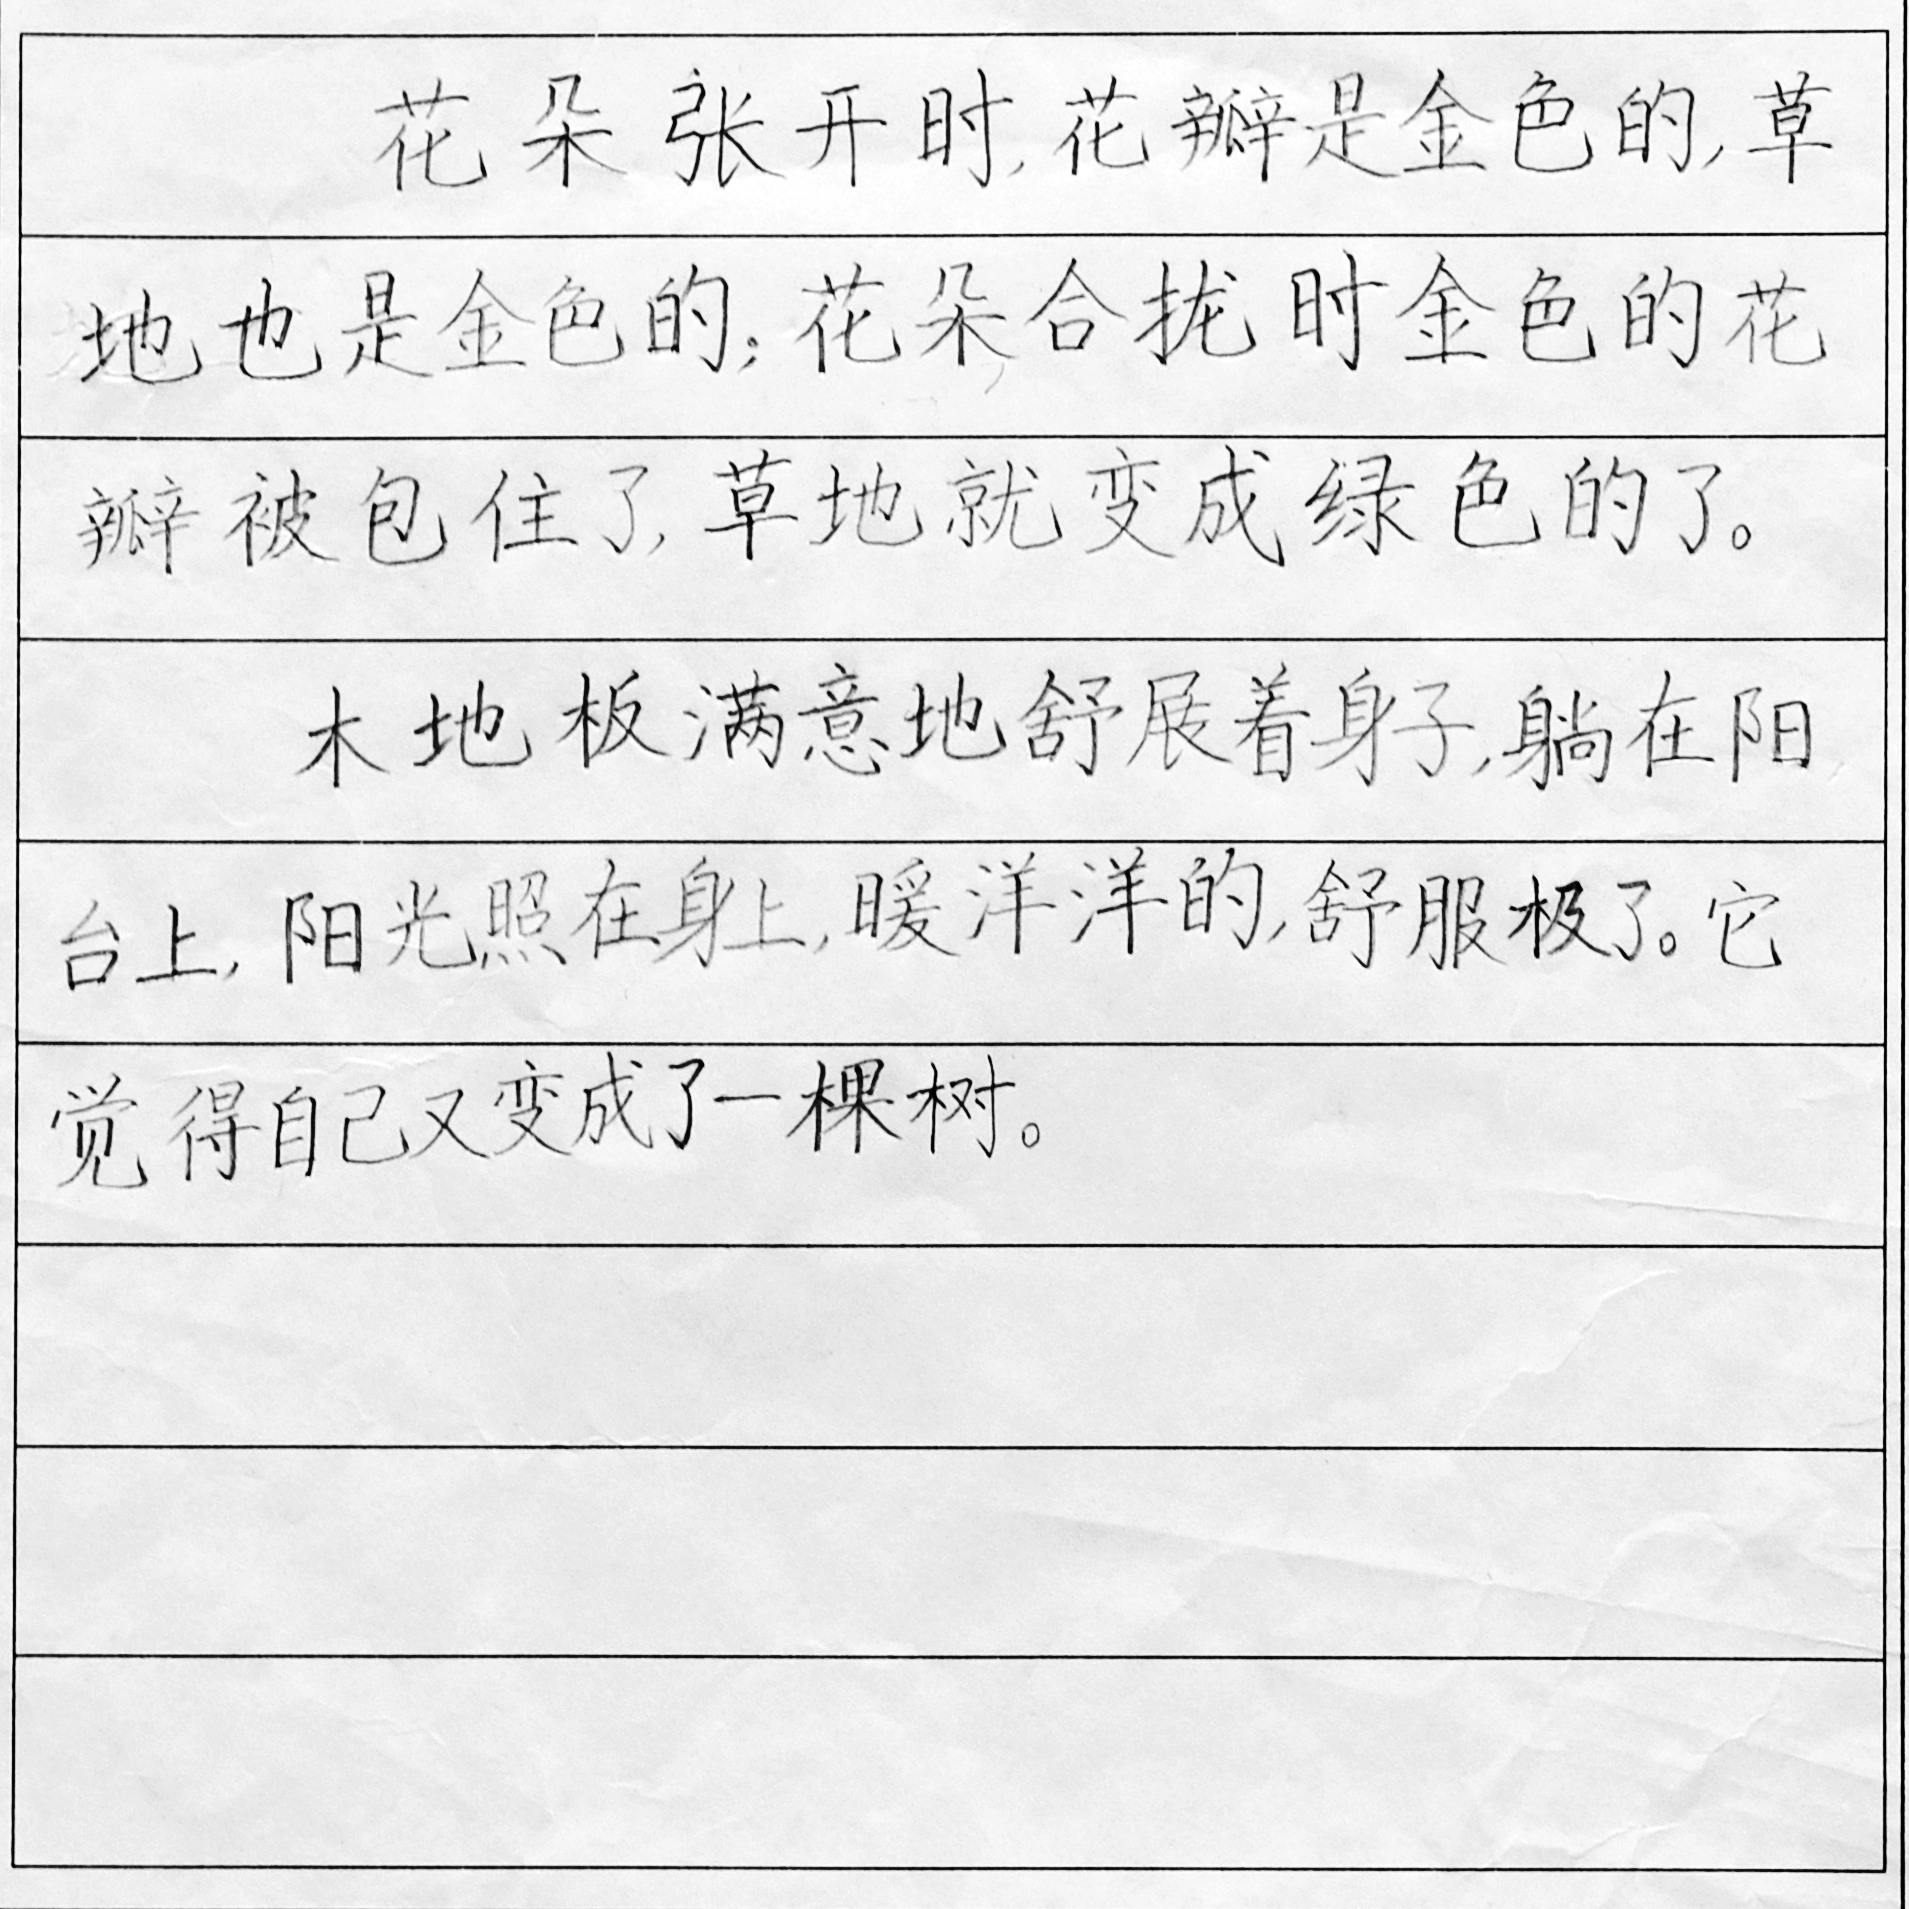 花朵张开时,花瓣是金色的,草
地也是金色的;花朵合拢时金色的花
瓣被包住了,草地就变成绿色的了。
木地板满意地舒展着身子,躺在阳
台上,阳光照在身上,暖洋洋的,舒服极了。它
觉得自己又变成了一棵树。